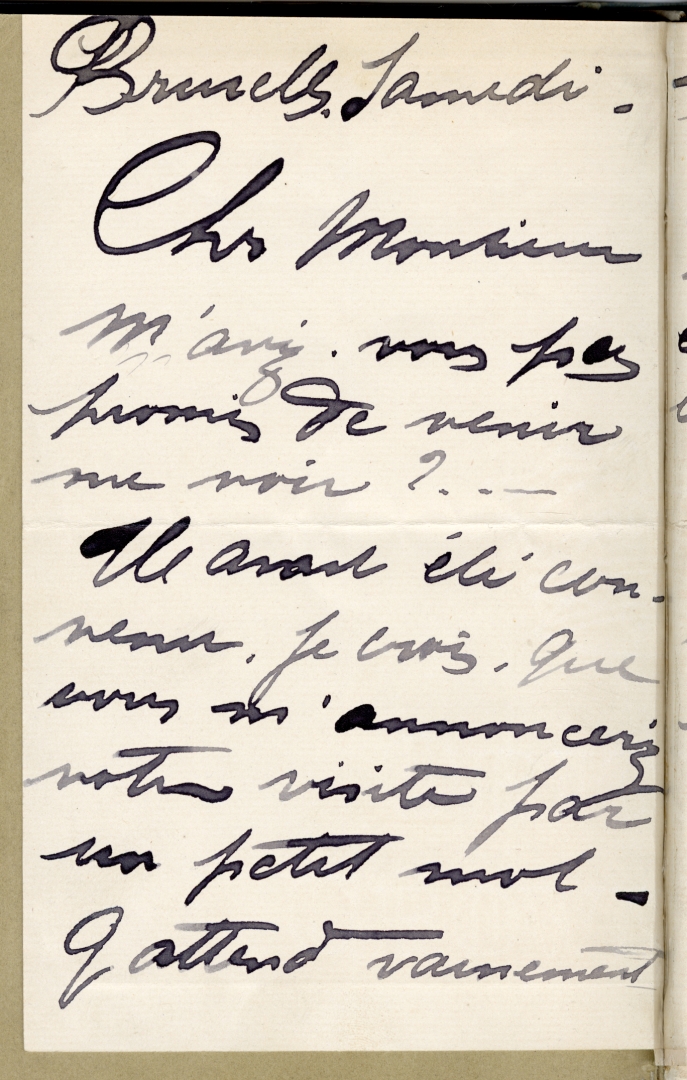 Bruxells. Samedi.
Cher Monsieur
M'avez-vous pas
promis de venir
me voir ?..—
Il avait été con-
venu, je crois, que
vous m'annonceriez
votre visite par
un petit mot -
J'attend vainement